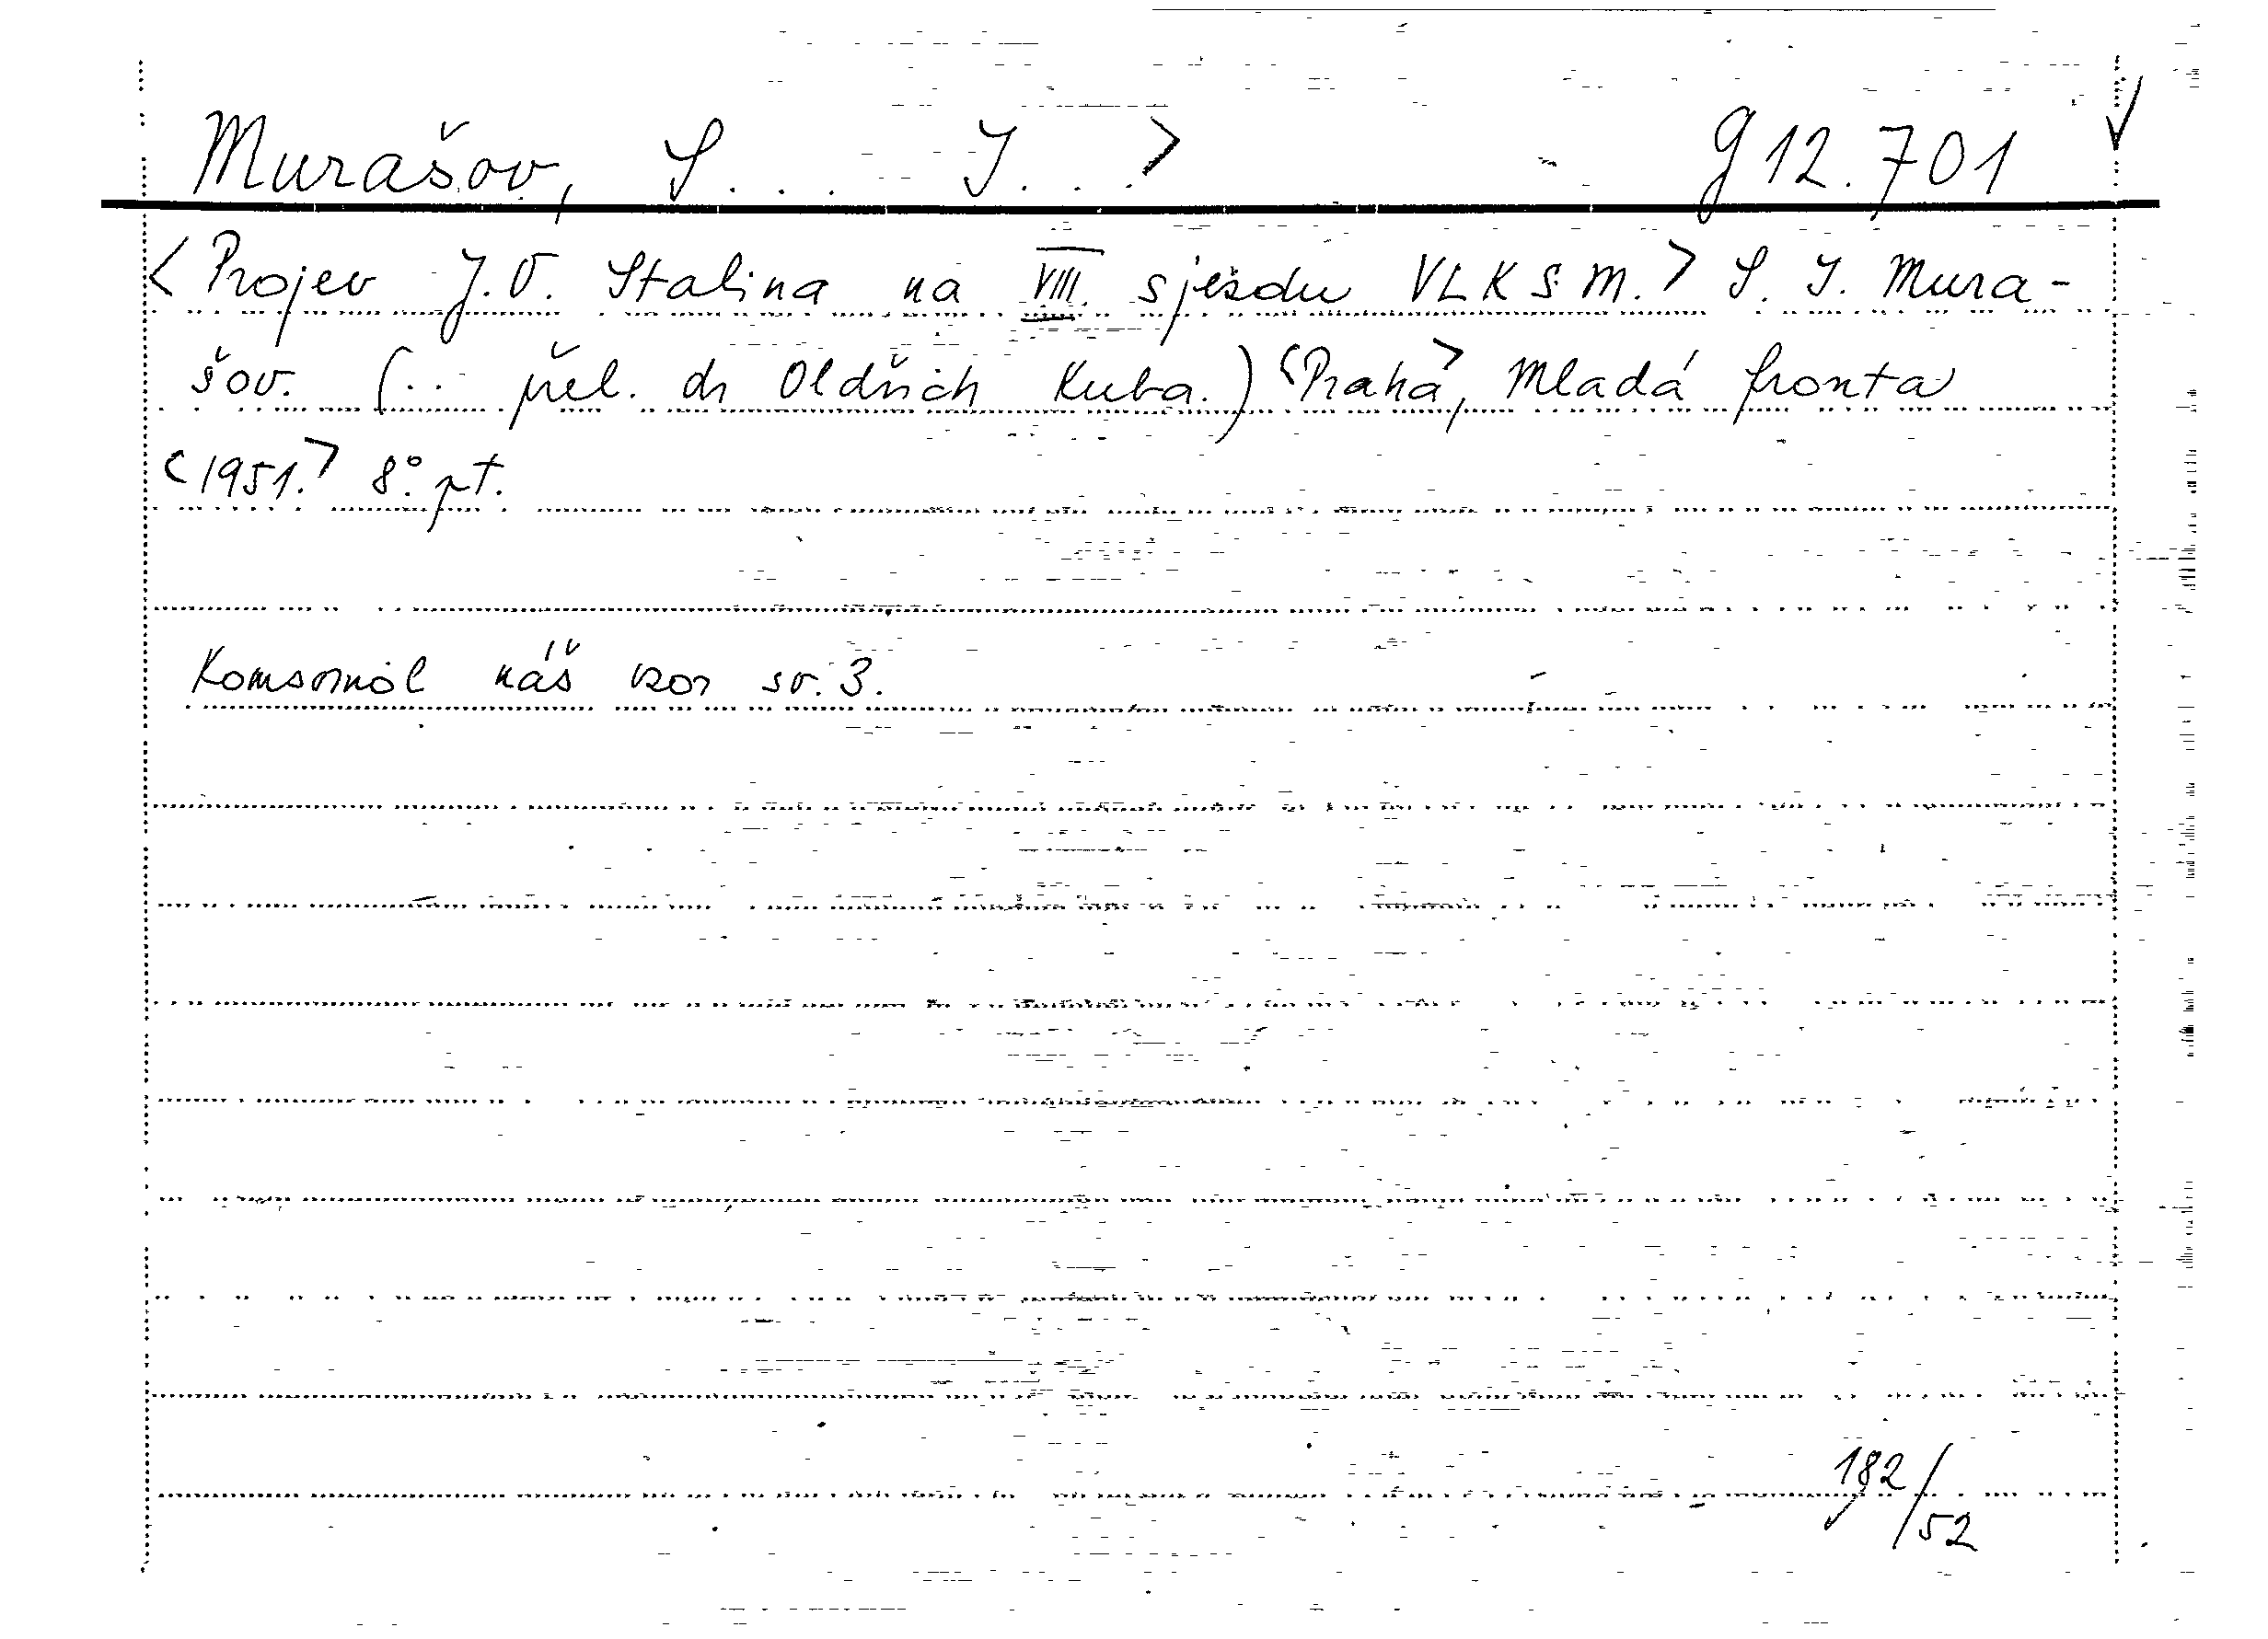 Murašov, S... J...> g 12.701
<Projev J.V. Stalina na VIII. sjezdu VLKSM.> S. J. Mura-
šov. (.. přel. dr Oldřich Kuba.) <Praha>, Mladá fronta
<1951.> 8° pt.
Komsomol náš vzor sv. 3.
192/52